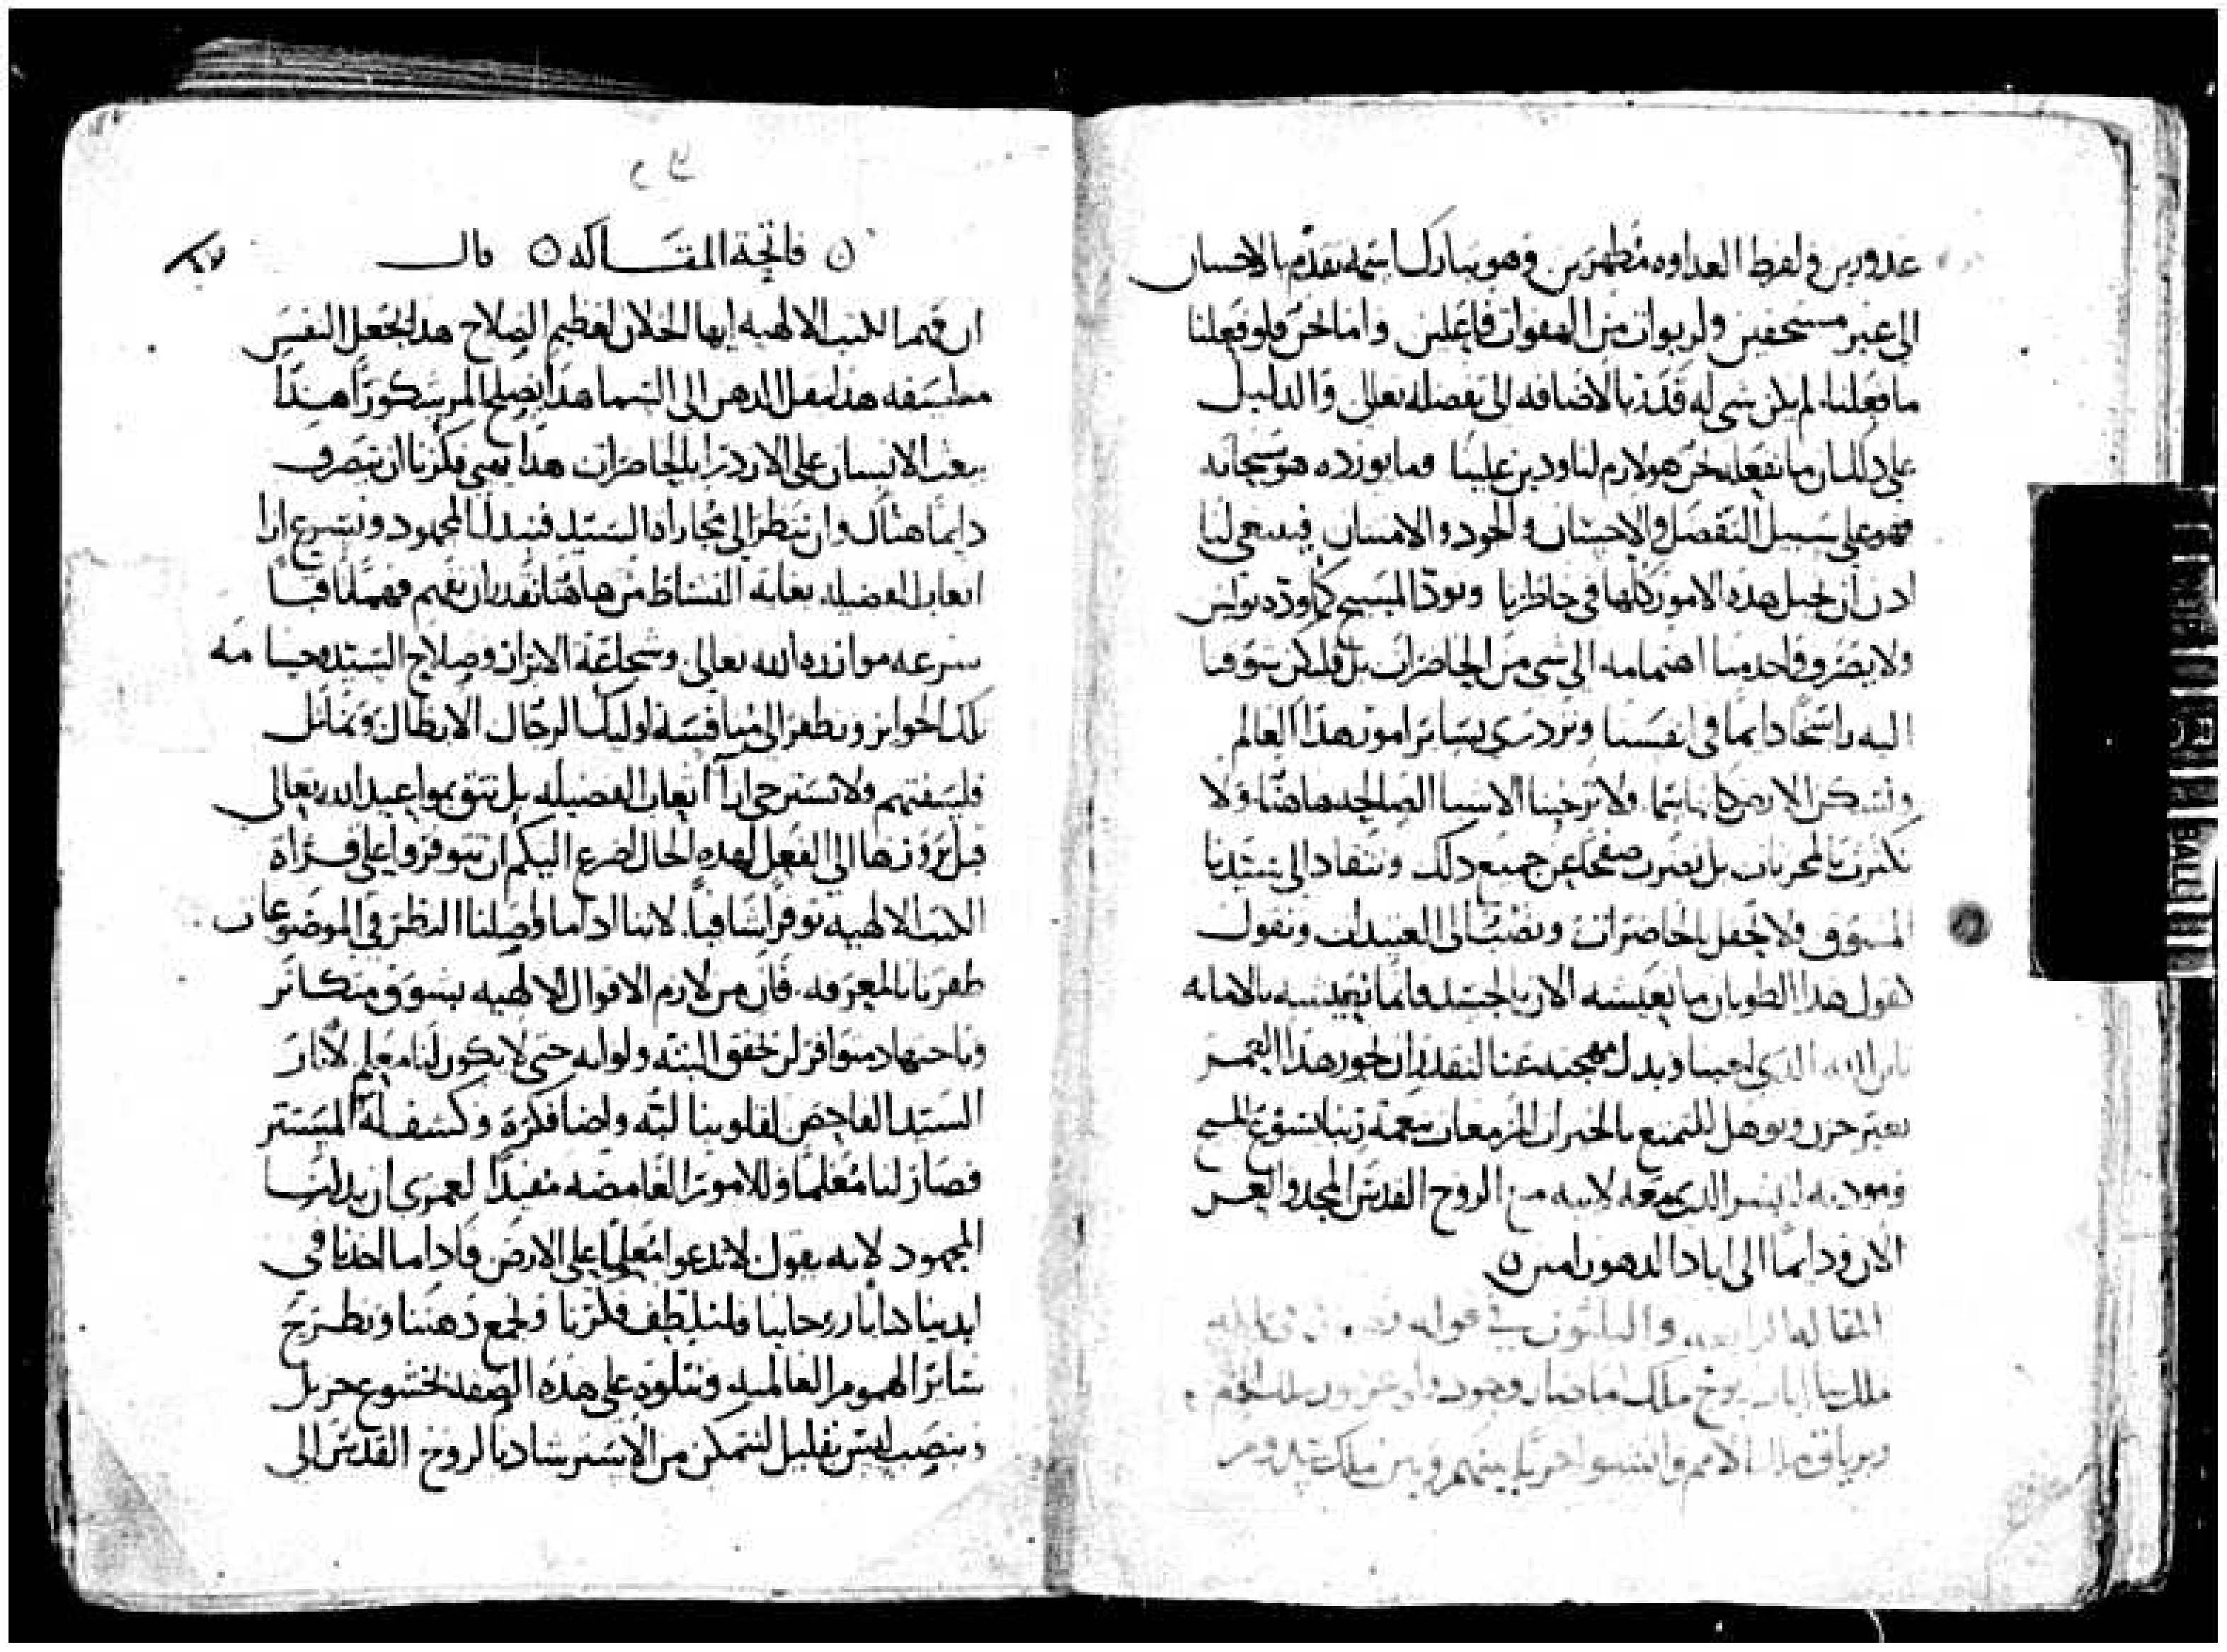 عدوين ولفرط العداوه مظهرين وهو تبارك اسمه تقدم بالاحسان
الى غير مستحقين ولربوات من الهفوات فاعلين واما نحن فلو فعلنا
ما فعلنا لم يكن شى له قدر بالاضافه الى تفضله تعالى والدليل
على ذلك ان ما نفعله نحن هو لازم لنا ودين علينا وما يورده هو سبحانه
فهو على سبيل التفضل والاحسان والجود والامتنان فينبغى لنا
اذن ان نجيل هذه الامور كلها فى خاطرنا ونود المسيح كما وده بولس
ولا يصرف واحد منا اهتمامه الى شى من الحاضرات بل فليكن شوقنا
اليه راسخا دايما فى انفسنا ونزدرى بساير امور هذا العالم
ونسكن الارض كانها سما ولا ترخينا الاشيا الصالحه هاهنا ولا
نكترث بالمحزنات بل نضرب صفحا عن جميع ذلك وننقاد الى سيدنا
المشوق ولا نحفل بالحاضرات ونصب الى العتيدات ونقول
كقول هذا الطوبان ما نعيشه الان بالجسد فانما نعيشه بالامانه
بابن الله الذى احبنا وبذل مهجته عنا لنقدر ان نجوز هذا العمر
بغير حزن ونوهل للتمتع بالخيرات المزمعات بنعمة ربنا يسوع المسيح
الذى معه لابيه مع الروح القدس المجد والعز
الان ودايما الى اباد الدهور امين
المقاله الرابعه والثلثون فى قوله
ملك امرافال وهود واريوخ ملك
الامم وانشوا حربا بينهم وبين ملك سدوم
فاتحة المقاله قال
ان فهما الكتب الالهيه ايها الخلان لعظيم الصلاح هذا يجعل النفس
متفلسفه هذا ينقل الذهن الى السما هذا يصلح المر شكورا هذا
يبعث الانسان على الازدرا بالحاضرات هذا يعنى فكرنا ان يتصرف
دايما هناك وان ننظر الى مجازاة السيد فنبذل المجهود ونسرع ازا
اتعاب الفضيله بغاية النشاط من هاهنا نقدر ان نفهم فهما ثاقبا
سرعه موازره الله تعالى وشجاعة الابرار وصلاح السيد
تلك الجوايز ونطفر الى منافسة اوليك الرجال الابطال ونماثل
فلسفتهم ولا نسترخى ازا اتعاب الفضيله بل نثق بمواعيد الله تعالى
قبل بروزها الى الفعل لهذه الحال اضرع اليكم ان تتوفروا على قراة
الكتب الالهيه توفرا شافيا لاننا اذا ما واصلنا النظر فى الموضوعات
ظفرنا بالمعرفه فان من لازم الاقوال الالهيه بشوق متكاثر
وباجتهاد متوافر لن يخفق البته ولو انه حتى لا يكون لنا معلم لانار
السيد الفاحص لقلوبنا لبه واضا فكره وكشف له المستتر
فصار لنا معلما وللامور الغامضه مفيدا لعمرى ان بذلنا
المجهود لانه يقول لا تدعوا معلما على الارض فاذا ما اخذنا فى
ايدينا كتابا روحانيا فلنلطف فكرنا ونجمع ذهننا ونطرح
ساير الهموم العالميه ونتلوه على هذه الصفه بخشوع جزيل
ونصب ليس بقليل لنتمكن من الاسترشاد بالروح القدس الى